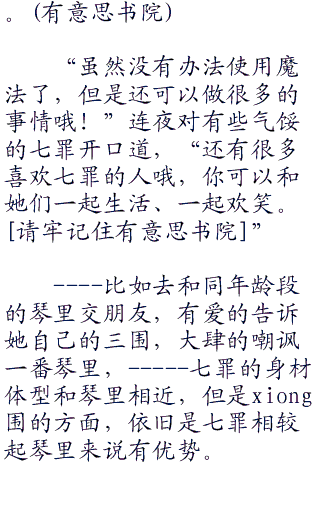 。(有意思书院)
“虽然没有办法使用魔
法了，但是还可以做很多的
事情哦！”连夜对有些气馁
的七罪开口道，“还有很多
喜欢七罪的人哦，你可以和
她们一起生活、一起欢笑。
[请牢记住有意思书院]”
----比如去和同年龄段
的琴里交朋友，有爱的告诉
她自己的三围，大肆的嘲讽
一番琴里，-----七罪的身材
体型和琴里相近，但是xiong
围的方面，依旧是七罪相较
起琴里来说有优势。